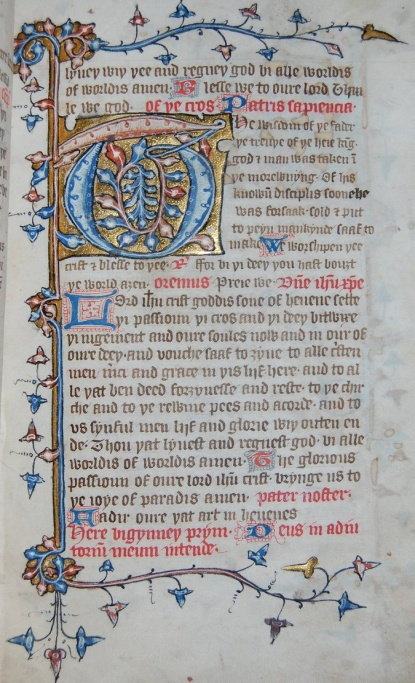 lyuey wiy yee and regney god bi alle worldis
of worldis amen. B lesse we to oure lord Than
le we god. of ye cros Patris sapiencia.
The wisdm of ye fader
ye treuye of ye heie kig.
god ⁊ man was taken i
ye morewnyng. Of his
knowun disciplis soone he
was forsaak. sold ⁊ put
to peyn mankynde saaf to
make We worschipen yee
crist ⁊ blesse to yee. R ffor bi yi deey you hast bouzt
ye world azen. oremus Preie we. Dñe ihu xpe
Lord ihu crist goddis sone of heuene sette
yi passioun yi cros and yi deey bitwixe
yi iugement and oure soules now and in our of
oure deey. and vouche saaf to zyue to alle csten
men mci and grace in yis lijf here. and to al
le yat ben deed forzyuesse and reste. to ye chir
che and to ye rewme pees and acorde. and to
vs synful men lijf and glorie wiy outen en
de. Thou yat lyuest and regnest god. bi alle
worldis of worldis amen. The glorious
passioun of oure lord ihu crist. brynge us to
ye ioye of paradis amen. pater noster.
Fadir oure yat art in heuenes
Here bigynney prym. Deus in adiu
toriu meum intende.